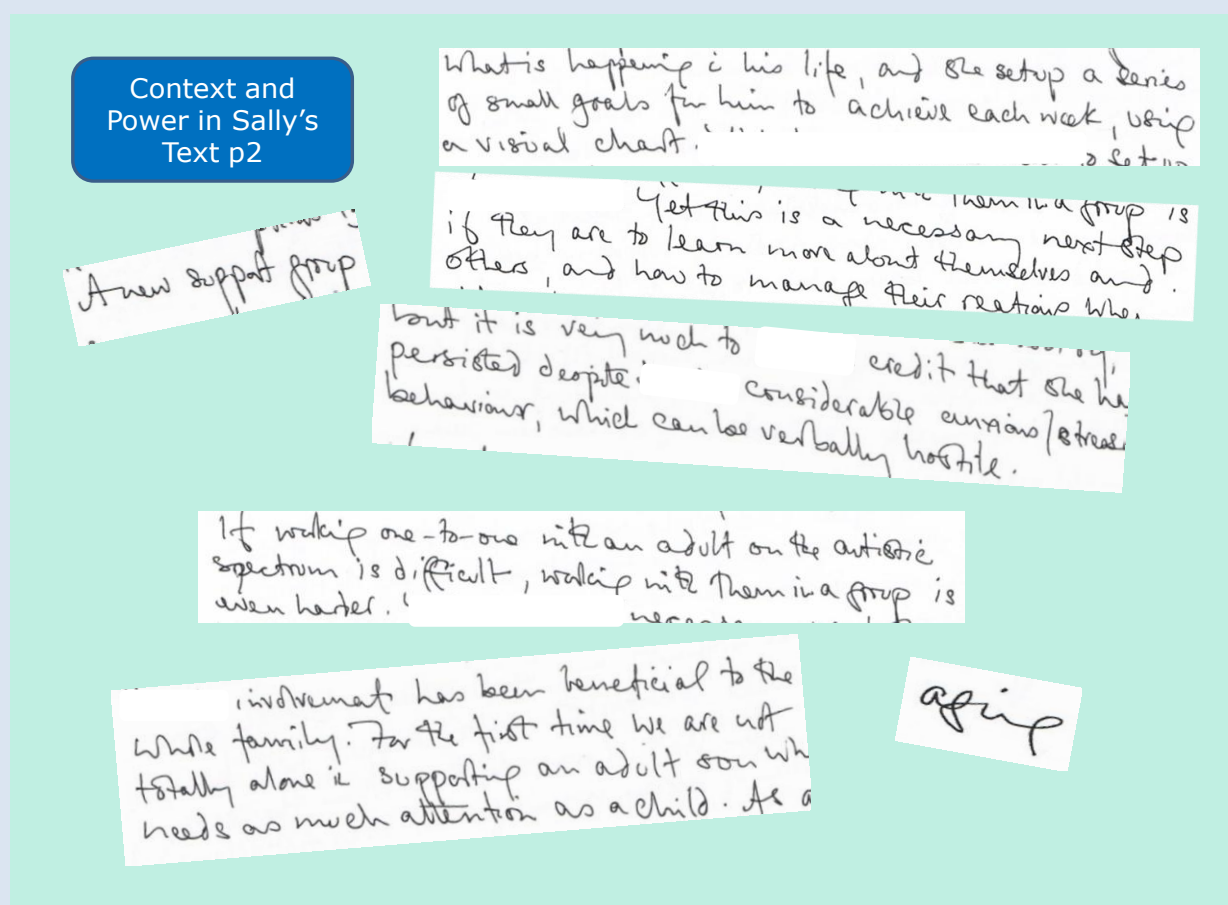 Context and
Power in Sally's
Text p2
what is happening i his life, and she set up a series
of small goals for him to achieve each week, using
a visual chart.
A new support group
them in a group is
Yet this is a necessary next step
if they are to learn more about themselves and
others, and how to manage their reactions
but it is very much to credit that she
persisted despite considerable anxious/
behaviour, which can be verbally hostile.
If working one-to-one with an adult on the autistic
spectrum is difficult, working with them in a group is
even harder.
involvement has been beneficial to the
whole family. For the first time we are not
totally alone in supporting an adult son
needs as much attention as a child. As
aging